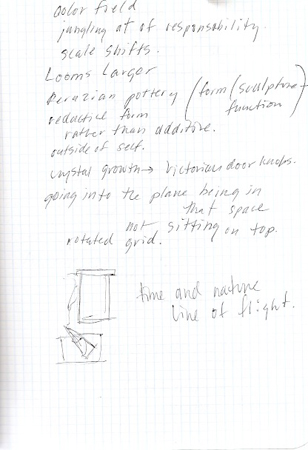 Color Field
jangling at of responsability.
scale shifts.
Looms Larger
pottery (form (sculpture)
reductive form function)
rather than additive.
outside of self.
crystal growth → Victorian door knobs.
going into the plane being in
that space
not sitting on top.
rotated grid.
time and nature
line of flight.